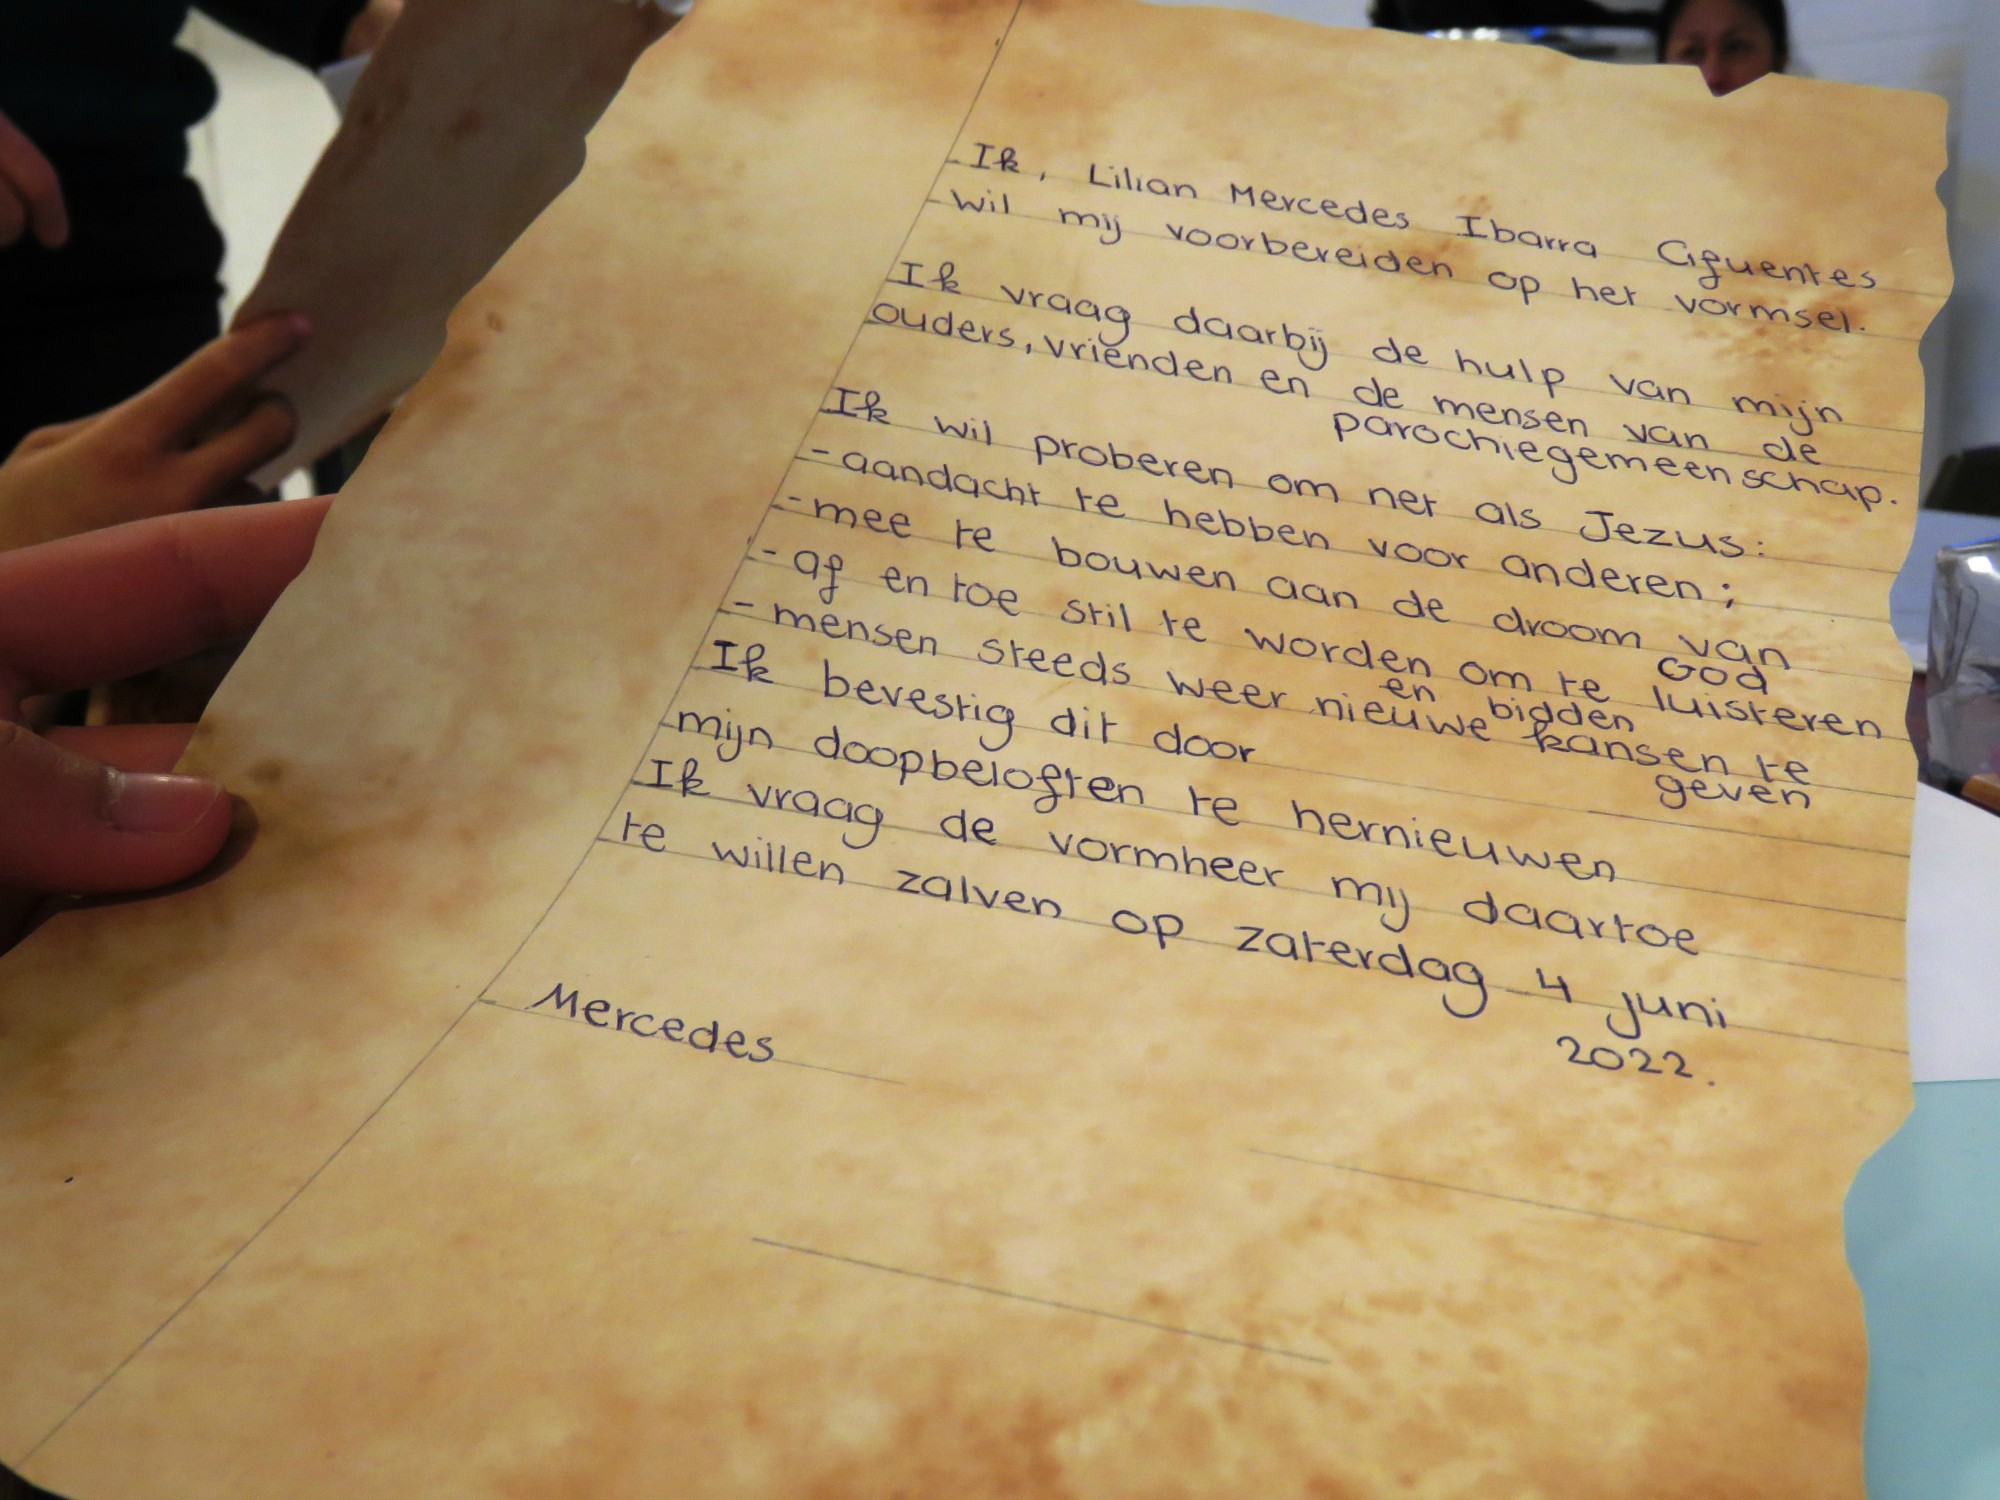 Ik, Lilian Mercedes Ibarra Cifuentes
wil mij voorbereiden op het vormsel.
Ik vraag daarbij de hulp van mijn
ouders, vrienden en de mensen van de
parochiegemeenschap.
Ik wil proberen om net als Jezus:
- aandacht te hebben voor anderen;
- mee te bouwen aan de droom van
God
- af en toe stil te worden om te luisteren
en bidden
- mensen steeds weer nieuwe kansen te
geven
Ik bevestig dit door
mijn doopbeloften te hernieuwen
Ik vraag de vormheer mij daartoe
te willen zalven op zaterdag 4 juni
2022.
Mercedes